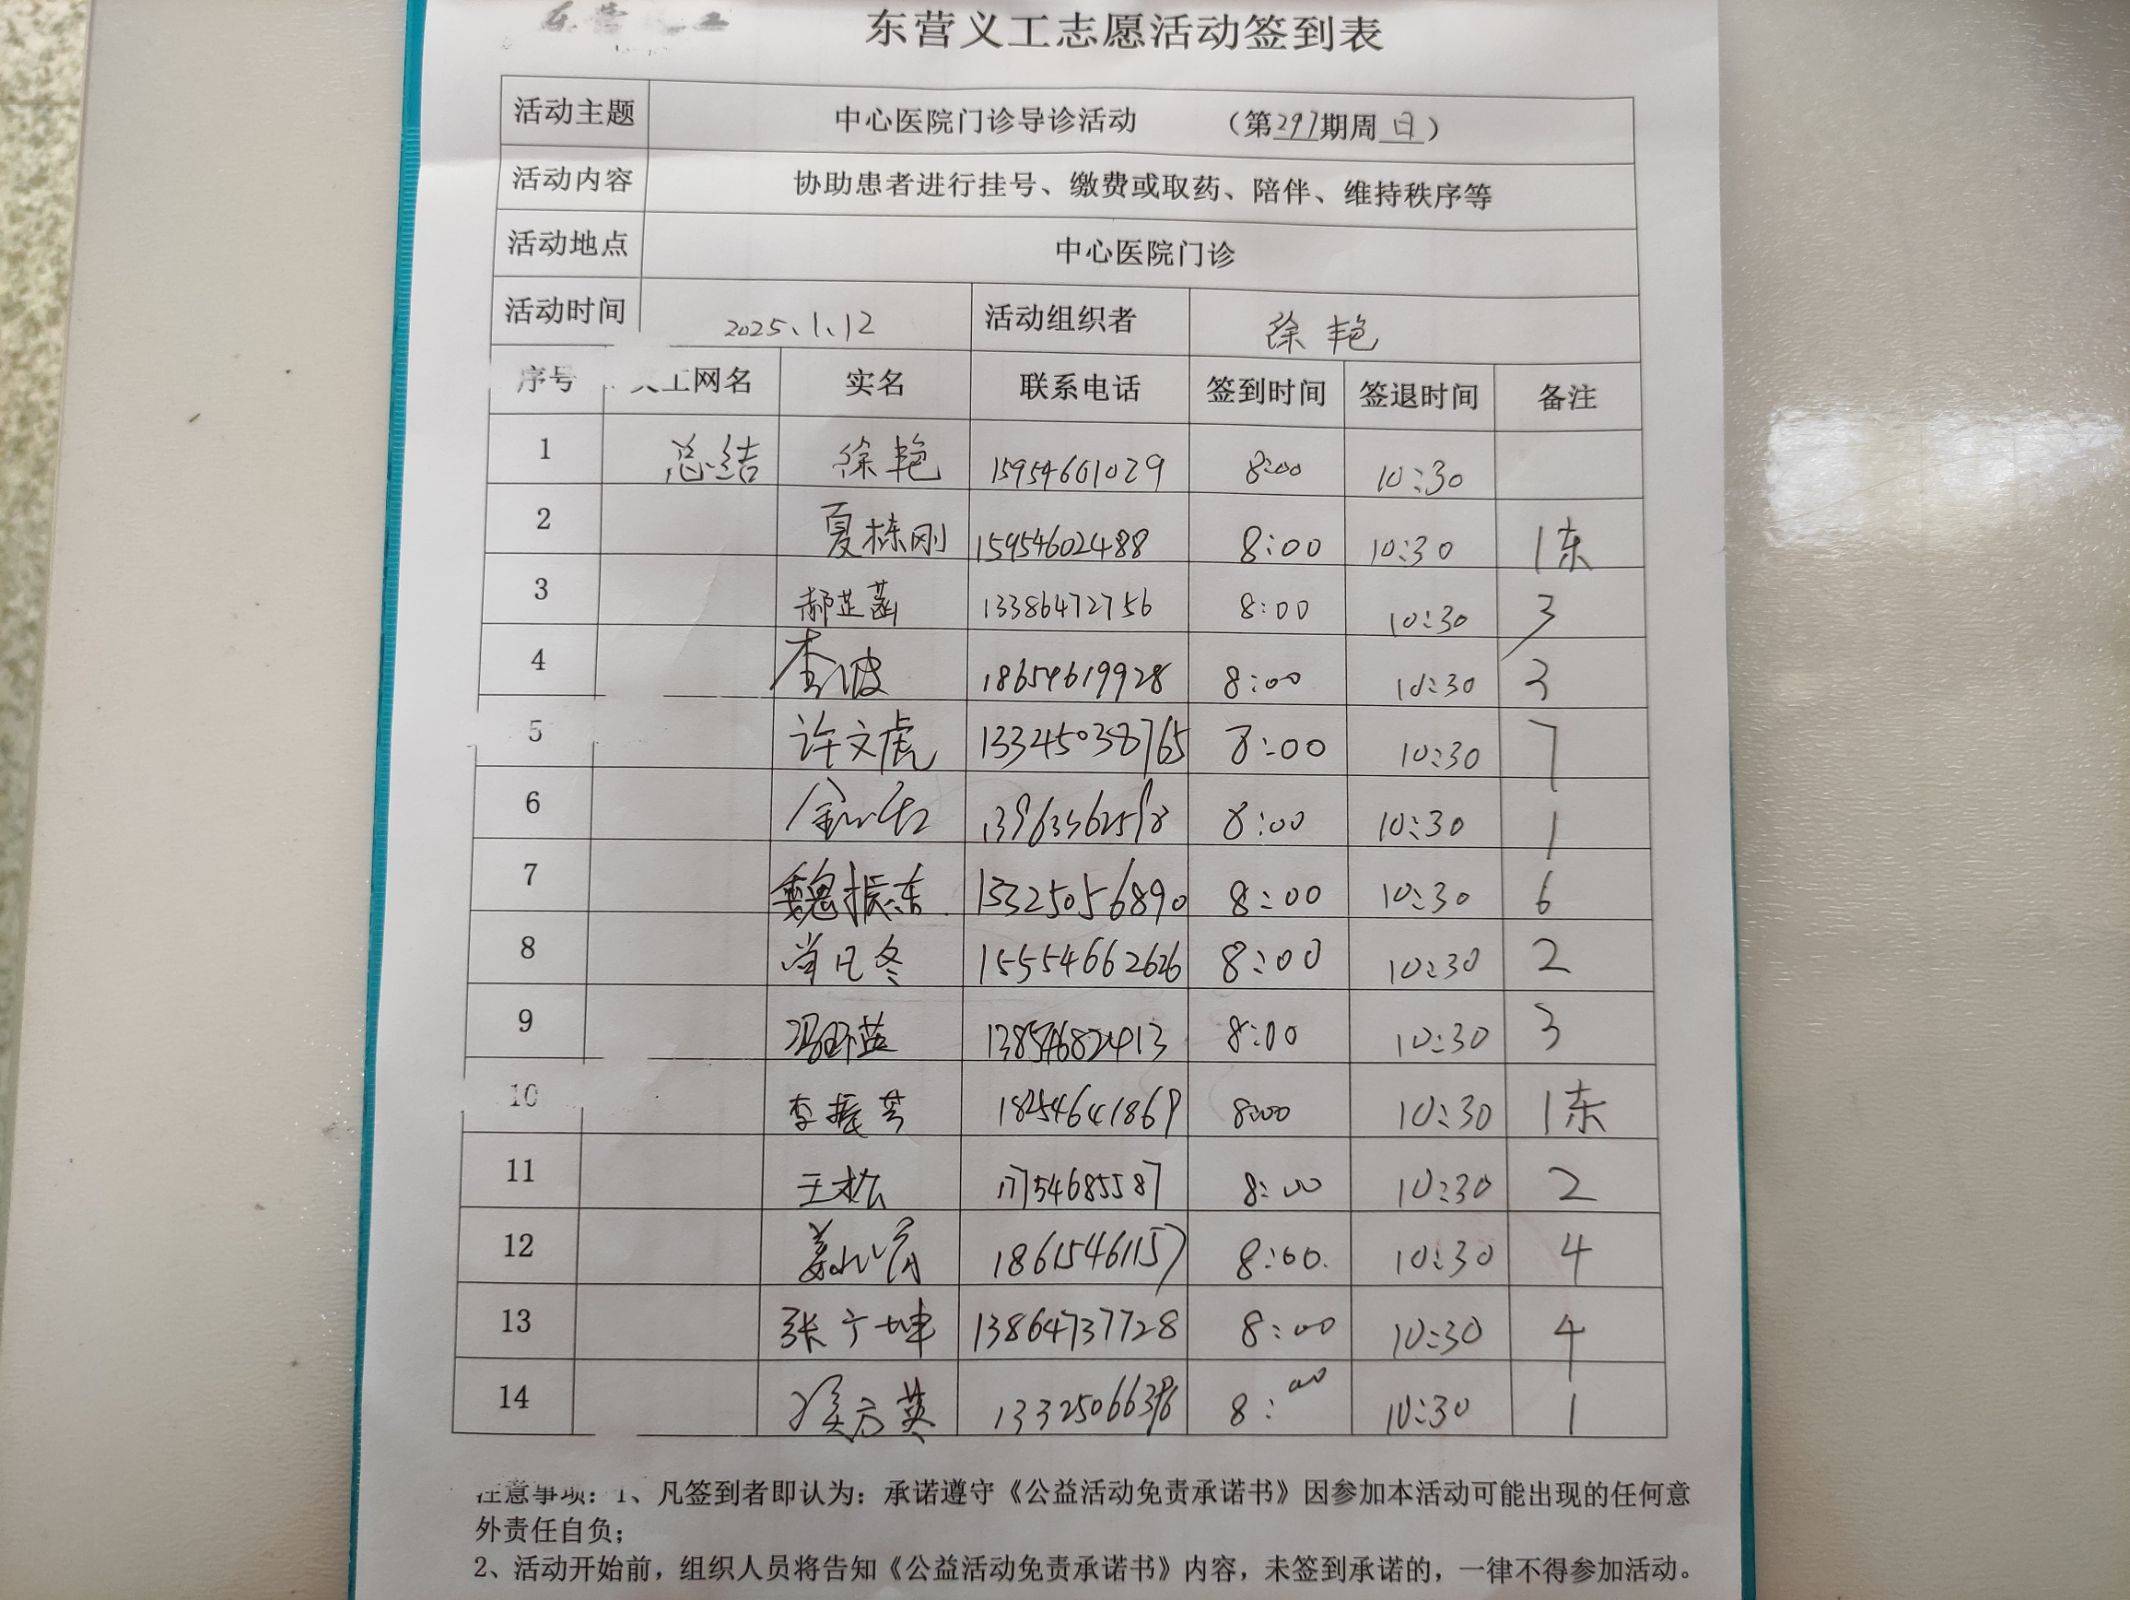 东营义工
东营义工志愿活动签到表
活动主题 中心医院门诊导诊活动 （第297期周日）
活动内容 协助患者进行挂号、缴费或取药、陪伴、维持秩序等
活动地点 中心医院门诊
活动时间 2025.1.12 活动组织者 徐艳
序号 义工网名 实名 联系电话 签到时间 签退时间 备注
1 总结 徐艳 15954601029 8:00 10:30
2 夏栋刚 15954602488 8:00 10:30 1东
3 郝芷菡 13386472756 8:00 10:30 3
4 李波 18654619928 8:00 10:30 3
5 许文虎 13345038765 8:00 10:30 7
6 8:00 10:30 1
7 魏振东 13325056890 8:00 10:30 6
8 15554662626 8:00 10:30 2
9 13854682413 8:00 10:30 3
10 李振芳 18254641869 8:00 10:30 1东
11 王松 17754685587 8:00 10:30 2
12 18615461157 8:00 10:30 4
13 张广坤 13864737728 8:00 10:30 4
14 8:00 10:30 1
注意事项：1、凡签到者即认为：承诺遵守《公益活动免责承诺书》因参加本活动可能出现的任何意
外责任自负；
2、活动开始前，组织人员将告知《公益活动免责承诺书》内容，未签到承诺的，一律不得参加活动。